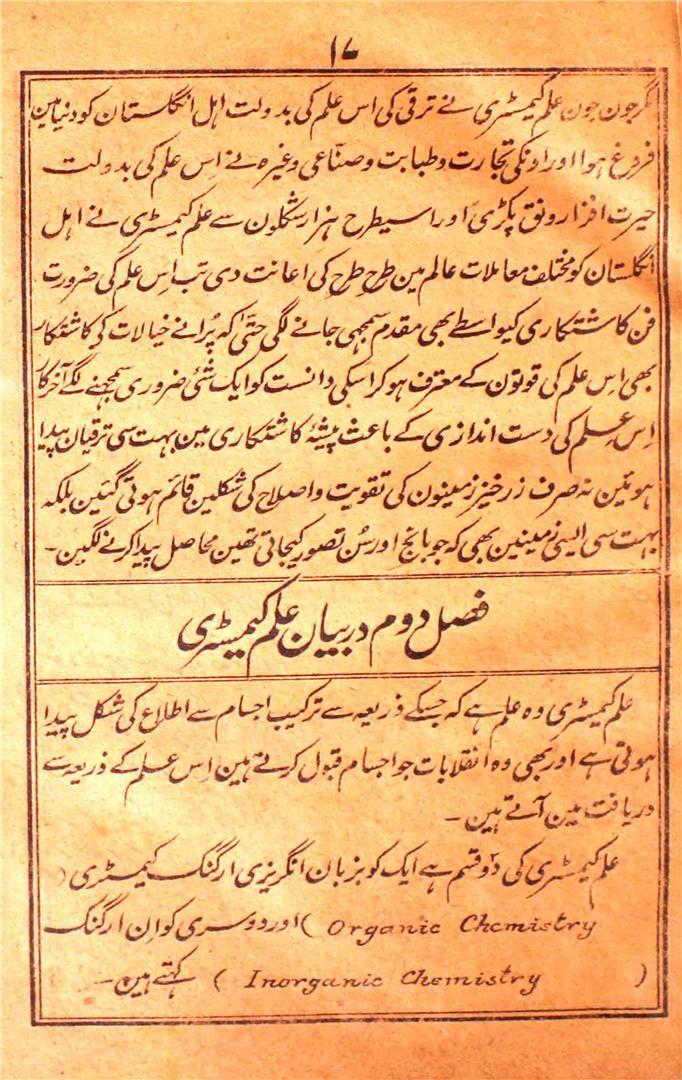 ۱۷
مگر جون جون علم کیمسٹری نے ترقی کی اس علم کی بدولت اہل انگلستان کو دنیا مین
فروغ ہوا اور اونکی تجارت و طبابت و صنّاعی وغیرہ نے اِس علم کی بدولت
حیرت افزا رونق پکڑی اور اسیطرح ہزار شکلون سے علم کیمسٹری نے اہل
انگلستان کو مختلف معاملات عالم مین طرح طرح کی اعانت دی تب اِس علم کی ضرورت
فن کاشتکاری کیواسطے بھی مقدم سمجھی جانے لگی حتّیٰ کہ پُرانے خیالات کے کاشتکار
بھی اِس علم کی قوتون کے معترف ہوکر اسکی دانست کو ایک شئی ضروری سمجھنے لگے آخرکار
اِس علم کی دست اندازی کے باعث پیشۂ کاشتکاری مین بہت سی ترقیان پیدا
ہوئین نہ صرف زرخیز زمینون کی تقویت و اصلاح کی شکلین قائم ہوتی گئین بلکہ
بہت سی ایسی زمینین بھی کہ جو بانج اور سُن تصور کیجاتی تھین محاصل پیدا کرنے لگین۔
فصل دوم در بیان علم کیمسٹری
علم کیمسٹری وہ علم ہے کہ جسکے ذریعہ سے ترکیب اجسام سے اطلاع کی شکل پیدا
ہوتی ہے اور بھی وہ انقلابات جو اجسام قبول کرتے ہین اِس علم کے ذریعہ سے
دریافت مین آتے ہین۔
علم کیمسٹری کی دو قسم ہے ایک کو بزبان انگریزی ارگنک کیمسٹری (
Organic Chemistry ) اور دوسری کو اِن ارگنک
( Inorganic Chemistry ) کہتے ہین۔